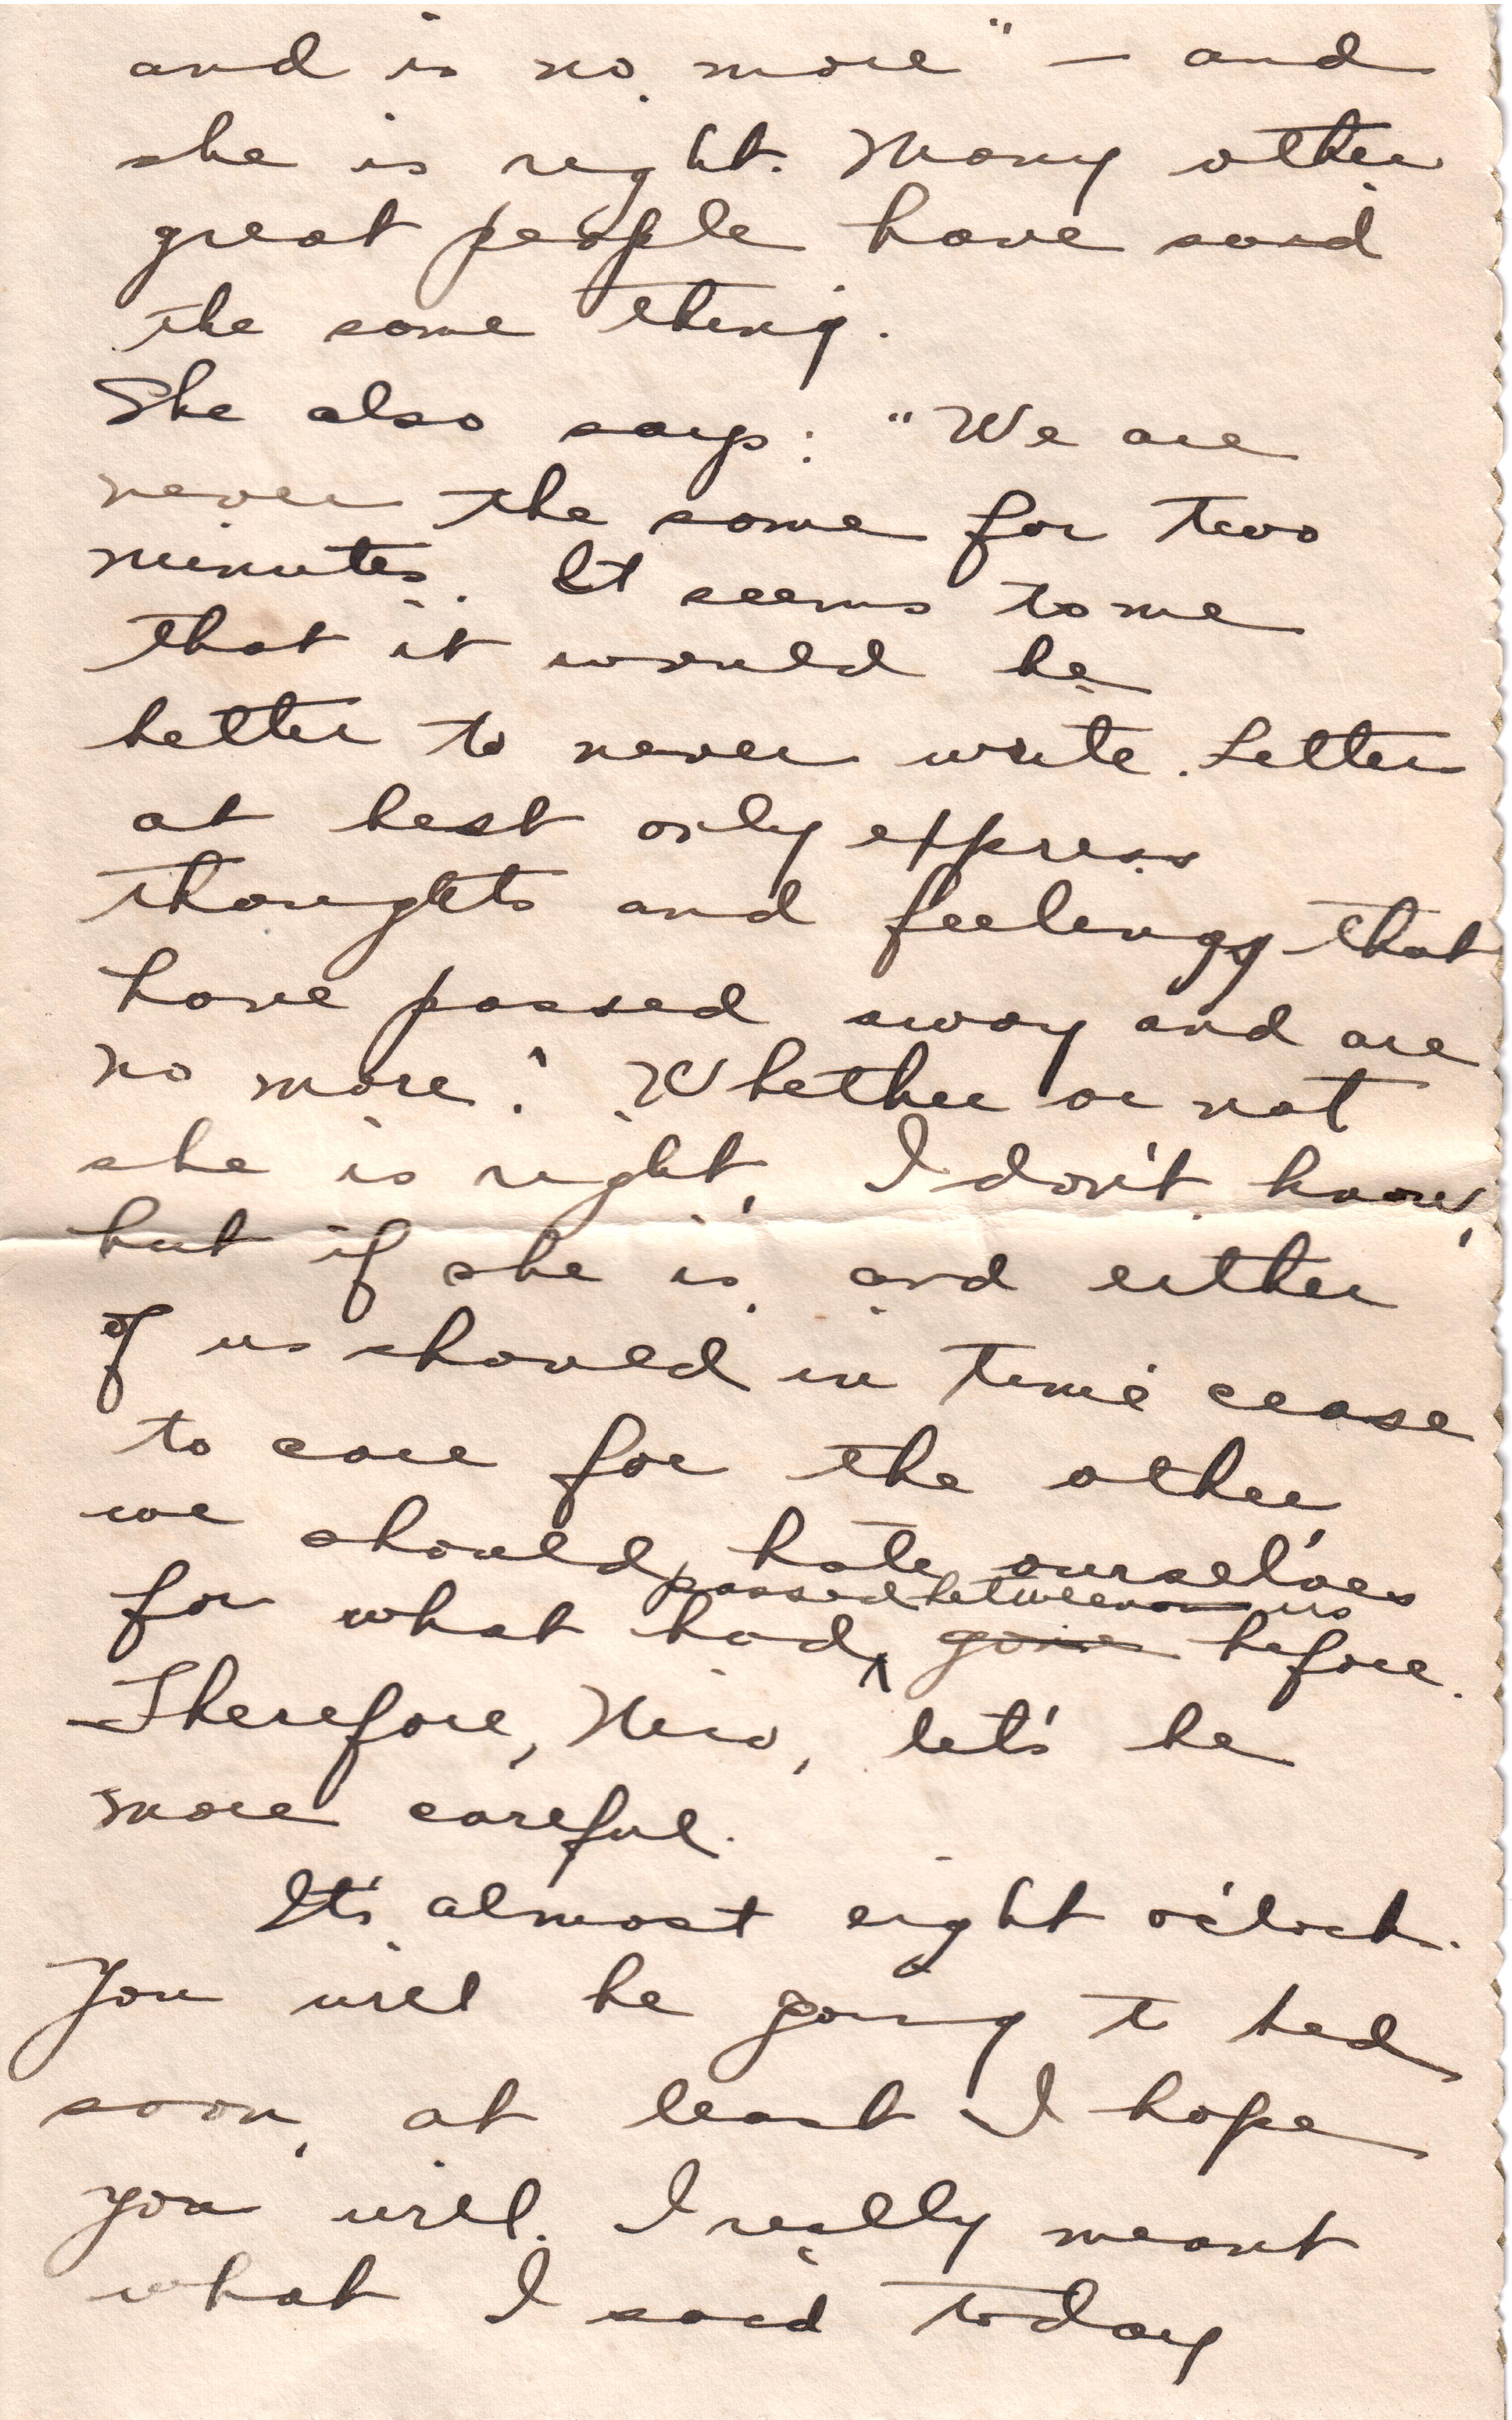 and is no more" — and
she is right. Many other
great people have said
the same thing.
She also says: "We are
never the same for two
minutes. It seems to me
that it would be
better to never write. Letter
at best only express
thoughts and feelings that
have passed away and are
no more." Whether or not
she is right, I don't know,
but if she is, and either
of us should in time cease
to care for the other
we should hate ourselves
passed between us
for what had gone before.
Therefore, let's be
more careful.
It's almost eight o'clock.
You will be going to bed
soon, at least I hope
you will. I really meant
what I said today